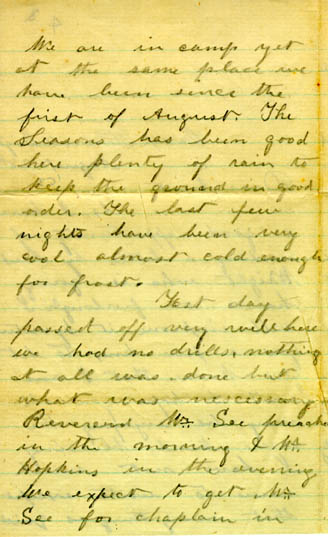 We are in camp yet
at the same place we
have been since the
first of August. The
Seasons has been good
here plenty of rain to
keep the ground in good
order. The last few
nights have been very
cool almost cold enough
for frost.
Fast day
passed off very well here
we had no drills, nothing
at all was done but
what was nescessary
Reverend Mr. See preached
in the morning & Mr.
Hopkins in the evening
We expect to get Mr.
See for chaplain in